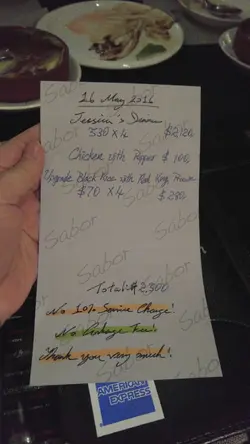 26 May 2016
Jessica's Dinner
530 X 4 $2120
Chicken with Pepper $ 100
Upgrade Black with Red King Prawn
$70 X 4 $280
Total: $2,500
No 10% Service Charge!
No Corkage Fee!
Thank you very much!
Sabor
AMERICAN
EXPRESS